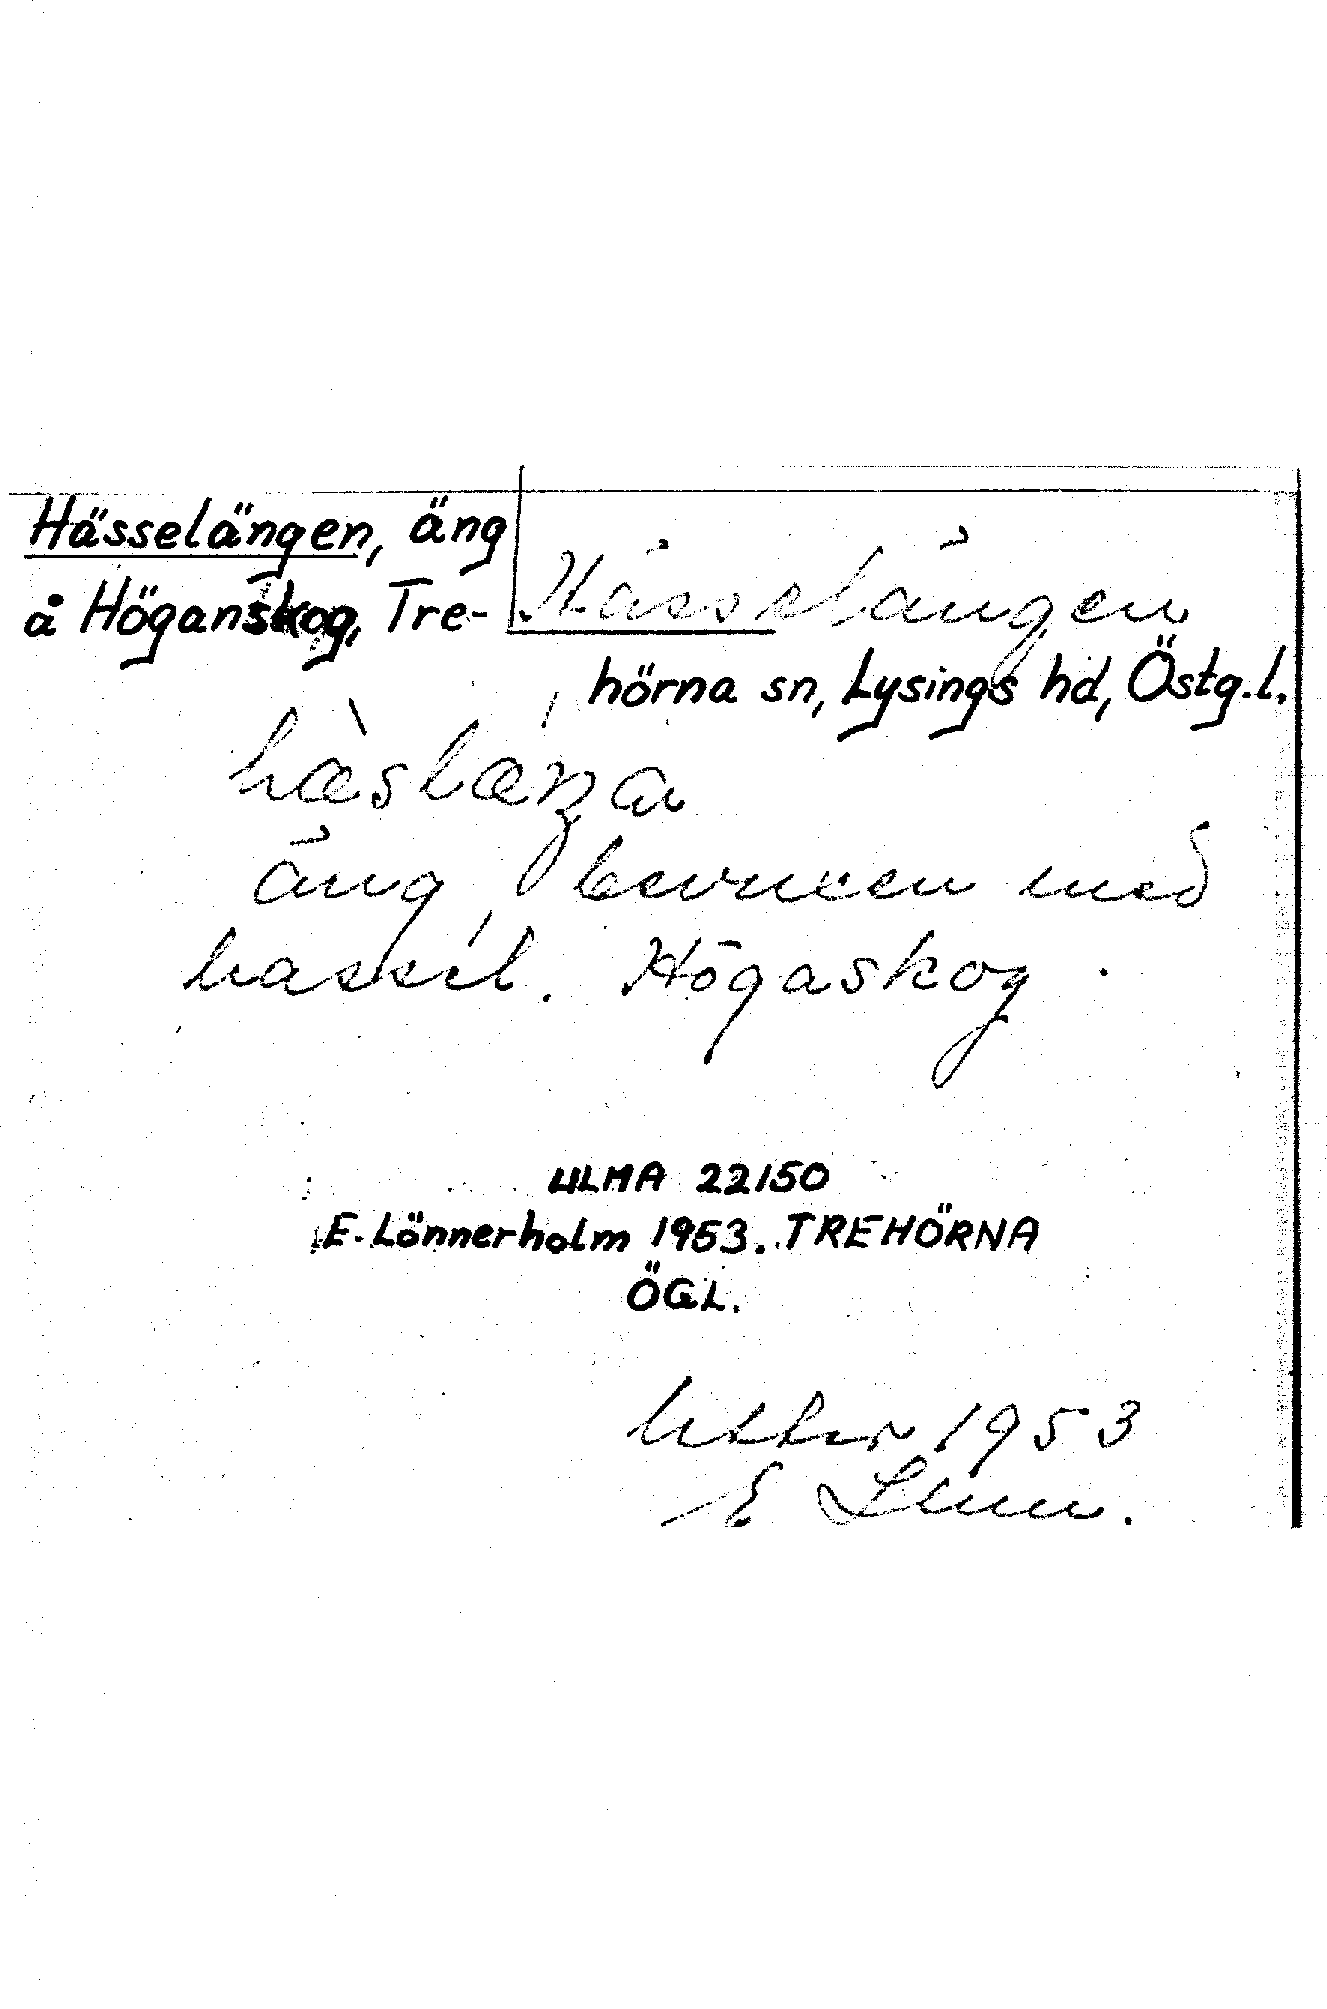 Hässelängen, äng
å Höganskog, Tre-
Hässelängen
hörna sn, Lysings hd, Östg.l.
hæ̀slǽŋa
äng, bevuxen med
hassel. Högaskog.
ULMA 22150
E. Lönnerholm 1953. TREHÖRNA
ÖGL.
1953
E